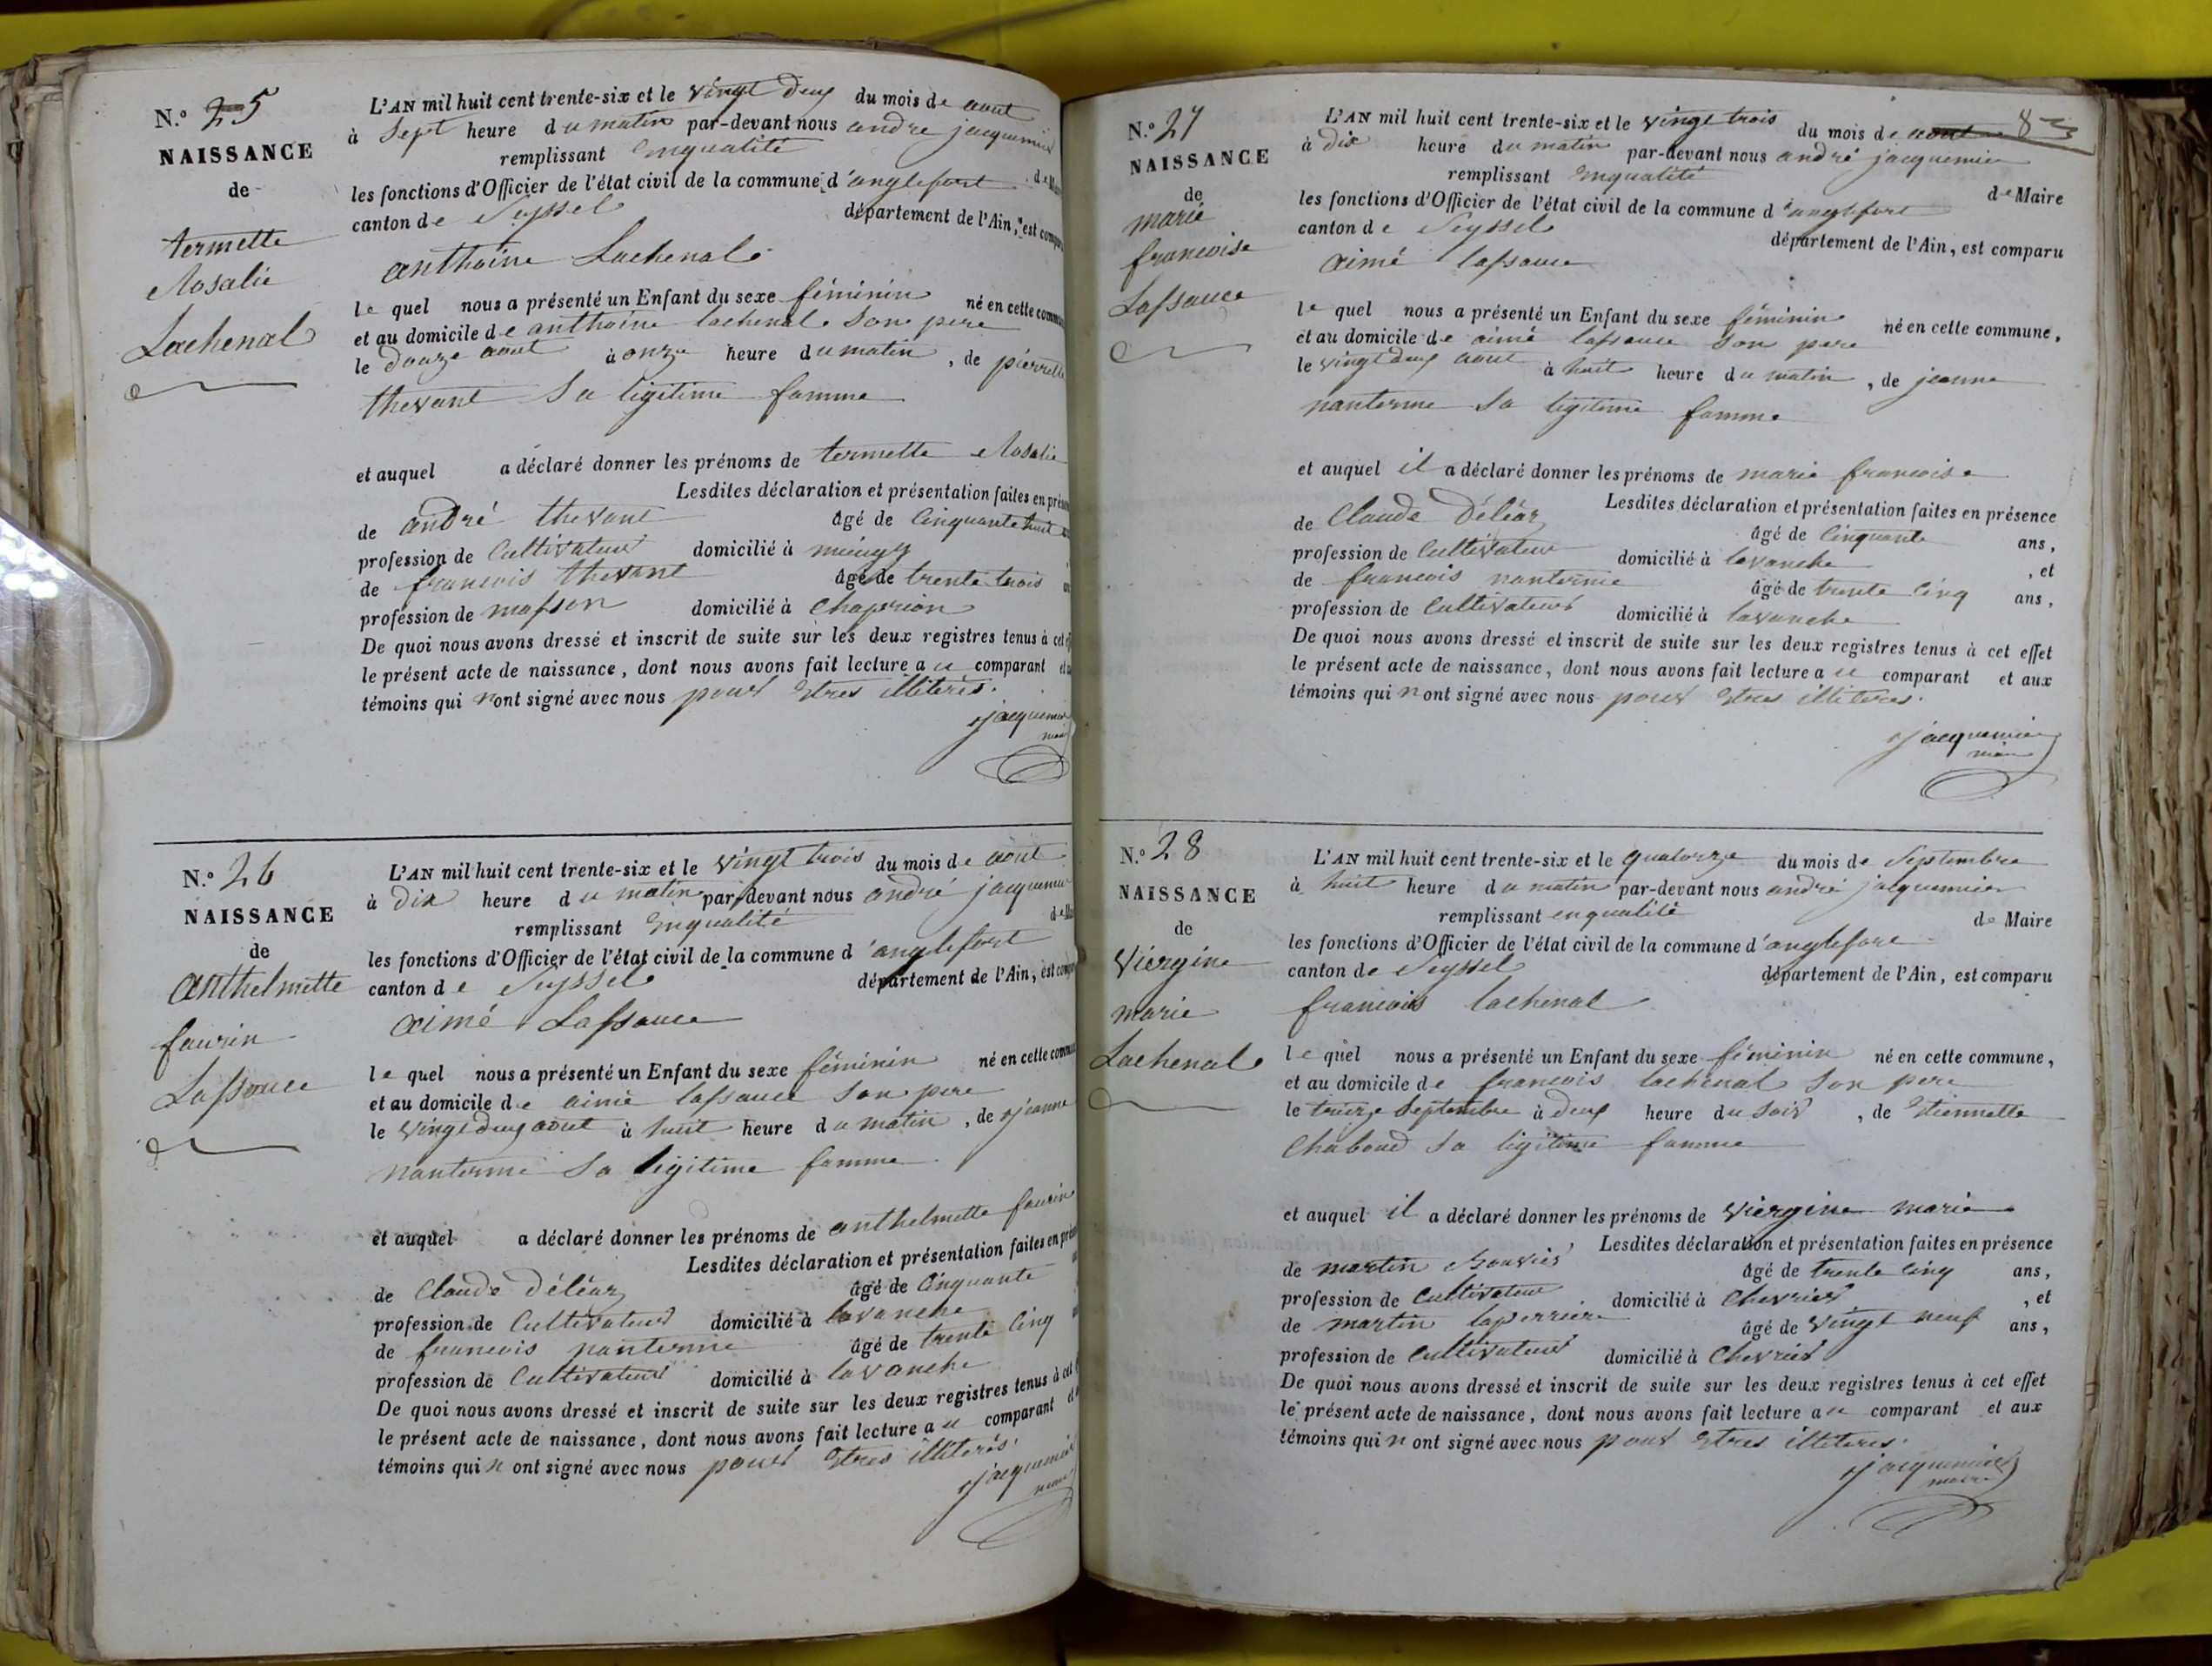 N.o 25
NAISSANCE
de
termette
Rosalie
Lachenal
L'AN mil huit cent trente-six et le vingt deux du mois de aout
à sept heure du matin par-devant nous andre jacquemier
remplissant enqualité de Mai
les fonctions d'Officier de l'état civil de la commune d'anglefort
canton de Seyssel département de l'Ain, est compa
anthoine Lachenal
le quel nous a présenté un Enfant du sexe féminin né en cette commu
et au domicile de anthoine lachenal son pere
le douze aout à onze heure du matin, de pierrette
thevant sa ligitime famme
et auquel a déclaré donner les prénoms de termette Rosalie
Lesdites déclaration et présentation faites en présen
de andré thevant âgé de cinquante huit
profession de Cultivateur domicilié à
de francois thevant âgé de trente trois
profession de masson domicilié à
De quoi nous avons dressé et inscrit de suite sur les deux registres tenus à cet
le présent acte de naissance, dont nous avons fait lecture au comparant et
témoins qui n'ont signé avec nous pour Etres illiterés.
jacquemier
maire
N.o 26
NAISSANCE
de
anthelmette
faurin
Lassauce
L'AN mil huit cent trente-six et le vingt trois du mois de aout
à dix heure du matin par-devant nous andré jacquemier
remplissant Enqualité de Mai
les fonctions d'Officier de l'état civil de la commune d'anglefort
canton de Seyssel département de l'Ain, est compa
aimé Lassauce
le quel nous a présenté un Enfant du sexe féminin né en cette commu
et au domicile de aimé lassauce son pere
le vingt deux aout à huit heure du matin, de jeanne
nanterme sa ligitime famme
et auquel a déclaré donner les prénoms de anthelmette faurin
Lesdites déclaration et présentation faites en prése
de Claude Déléaz âgé de Cinquante
profession de Cultivateur domicilié à lavanche
de francois nanterme âgé de trente cinq
profession de Cultivateur domicilié à lavanche
De quoi nous avons dressé et inscrit de suite sur les deux registres tenus à cet
le présent acte de naissance, dont nous avons fait lecture au comparant et
témoins qui n ont signé avec nous pour Etres illiterés.
jacquemier
maire
8
N.o 27
NAISSANCE
de
marie
francoise
Lassauce
L'AN mil huit cent trente-six et le vingt trois du mois de aout
à dix heure du matin par-devant nous andré jacquemier
remplissant Enqualité de Maire
les fonctions d'Officier de l'état civil de la commune d'anglefort
canton de Seyssel département de l'Ain, est comparu
aimé lassauce
le quel nous a présenté un Enfant du sexe féminin né en cette commune,
et au domicile de aimé lassauce son pere
le vingt deux aout à huit heure du matin, de jeanne
nanterme sa ligitime famme
et auquel il a déclaré donner les prénoms de marie francoise
Lesdites déclaration et présentation faites en présence
de Claude Déléaz âgé de Cinquante ans,
profession de Cultivateur domicilié à lavanche , et
de francois nanterme âgé de trente cinq ans,
profession de Cultivateur domicilié à lavanche
De quoi nous avons dressé et inscrit de suite sur les deux registres tenus à cet effet
le présent acte de naissance, dont nous avons fait lecture au comparant et aux
témoins qui n ont signé avec nous pour Etres illiteres.
jacquemier
maire
N.o 28
NAISSANCE
de
Viergine
marie
Lachenal
L'AN mil huit cent trente-six et le quatorze du mois de Septembre
à huit heure du matin par-devant nous andré jacquemier
remplissant enqualité de Maire
les fonctions d'Officier de l'état civil de la commune d'anglefort
canton de Seyssel département de l'Ain, est comparu
francois lachenal
le quel nous a présenté un Enfant du sexe féminin né en cette commune,
et au domicile de francois lachenal son pere
le treize Septembre à deux heure du soir , de Etiennette
Chaboud sa ligitime famme
et auquel il a déclaré donner les prénoms de Viergine marie
Lesdites déclaration et présentation faites en présence
de martin Bouvier âgé de trente cinq ans,
profession de Cultivateur domicilié à Chevrier , et
de martin laperriere âgé de vingt neuf ans,
profession de Cultivateur domicilié à Chevrier
De quoi nous avons dressé et inscrit de suite sur les deux registres tenus à cet effet
le présent acte de naissance, dont nous avons fait lecture au comparant et aux
témoins qui n ont signé avec nous pour Etres illiteres.
jacquemier
maire